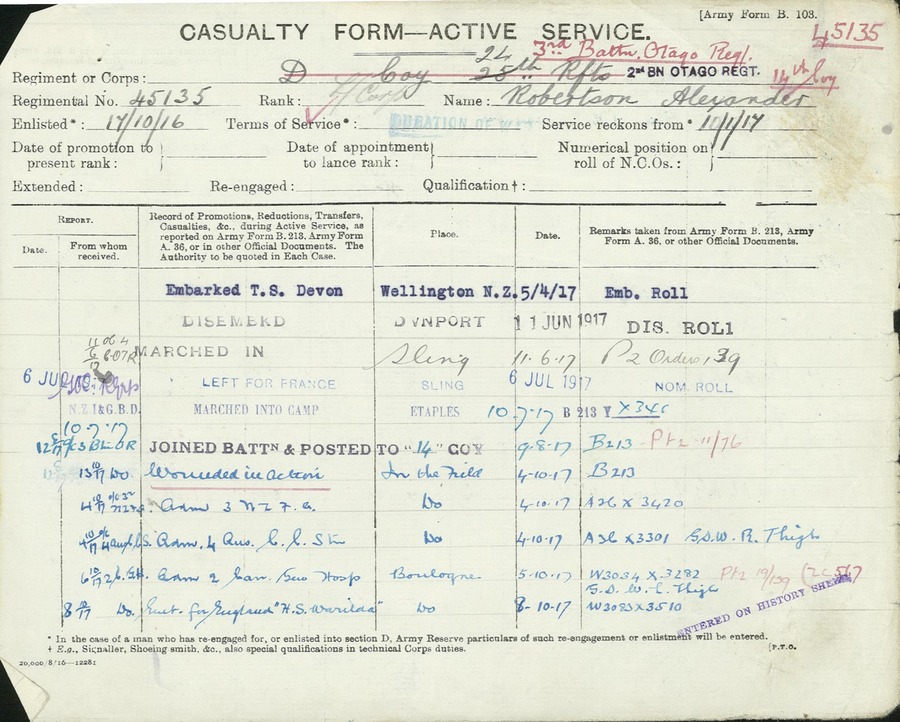 [Army Form B. 103.
CASUALTY FORM—ACTIVE SERVICE.
45135
3rd Battn. Otago Regt.
24
Regiment or Corps: D Coy 25th Rfts 2nd BN OTAGO REGT. 14th Coy
Regimental No. 45135 Rank: Name: Robertson Alexander
Enlisted*: 17/10/16 Terms of Service*: DURATION OF WAR Service reckons from* 10/1/17
Date of promotion to present rank: Date of appointment to lance rank: Numerical position on roll of N.C.Os.:
Extended: Re-engaged: Qualification†:
REPORT.
Date. From whom received.
Record of Promotions, Reductions, Transfers, Casualties, &c., during Active Service, as reported on Army Form B. 213, Army Form A. 36, or in other Official Documents. The Authority to be quoted in Each Case.
Place.
Date.
Remarks taken from Army Form B. 213, Army Form A. 36, or other Official Documents.
Embarked T.S. Devon Wellington N.Z. 5/4/17 Emb. Roll
DISEMBKD DVNPORT 11 JUN 1917 DIS. ROLL
MARCHED IN Sling 11.6.17 Pt 2 Orders 39
6 JUL LEFT FOR FRANCE SLING 6 JUL 1917 NOM. ROLL
N.Z.I&G.B.D. MARCHED INTO CAMP ETAPLES 10.7.17 B 213 X346
10.7.17
JOINED BATTN & POSTED TO "14" COY 9.8.17 B213 Pt 2 11/76
13/10/17 Do Wounded in action In the Field 4-10-17 B213
4/10/17 Adm 3 N Z F. A. Do 4-10-17 A36 X 3420
4/10/17 Adm. 4 Aus. C. C. Stn Do 4-10-17 A36 X3301 G.S.W. R. Thigh
6/10/17 Adm 2 Can. Gen Hosp Boulogne 5-10-17 W3034 X.3282 Pt 2 19/139
G.S.W. L. Thigh
8/10/17 Do. Emb. for England "H.S. Warilda" Do 8-10-17 W3083 X3510
ENTERED ON HISTORY SHEET
* In the case of a man who has re-engaged for, or enlisted into section D, Army Reserve particulars of such re-engagement or enlistment will be entered.
† E.g., Signaller, Shoeing smith, &c., also special qualifications in technical Corps duties.
[P.T.O.
20,000/8/16—12281